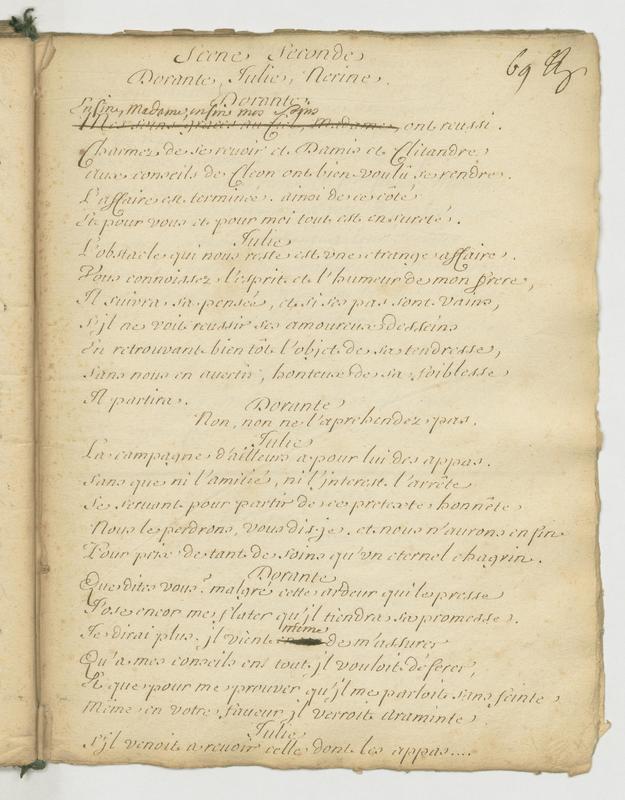 Scene Seconde
69
Dorante, Julie, Nerine.
Dorante.
Enfin, Madame, enfin mes soins
Mes soins graces au Ciel, Madame, ont reussi.
Charmez de se revoir et Damis et Clitandre
Aux conseils de Cleon ont bien voulû se rendre.
L'affaire est terminée. ainsi de ce côté
Et pour vous et pour moi tout est en sureté.
Julie
L'obstacle qui nous reste est vne etrange affaire.
Vous connoissez l'esprit et l'humeur de mon frere,
Il suivra sa pensée, et si ses pas sont vains,
S'jl ne voit reussir ses amoureux desseins
En retrouvant bien tôt l'objet de sa tendresse,
Sans nous en avertir, honteux de sa foiblesse
Il partira.
Dorante
Non, non ne l'aprehendez pas.
Julie
La campagne d'ailleurs a pour lui des appas.
Sans que ni l'amitié, ni l'interest l'arrête
Se servant pour partir de ce pretexte honnête
Nous le perdrons, vous dis-je. et nous n'aurons enfin
Pour prix de tant de soins qu'vn eternel chagrin.
Dorante
Que dites vous? malgré cette ardeur qui le presse
J'ose encor me flater qu'jl tiendra sa promesse.
Je dirai plus, jl vient même de m'assurer
Qu'a mes conseils en tout jl vouloit déferer,
Et que pour me prouver qu'jl me parloit sans feinte
Même en votre faveur jl verroit Araminte
Julie
S'jl venoit a revoir celle dont les appas....